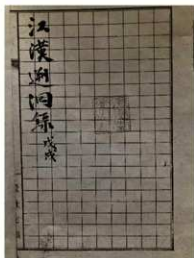 江漢遡洄錄 戊戌